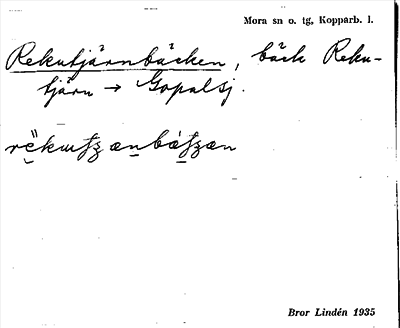 Mora sn o. tg, Kopparb. l.
Rekutjärnbäcken, bäck Reku-
tjärn → Gopalsj.
Bror Lindén 1935